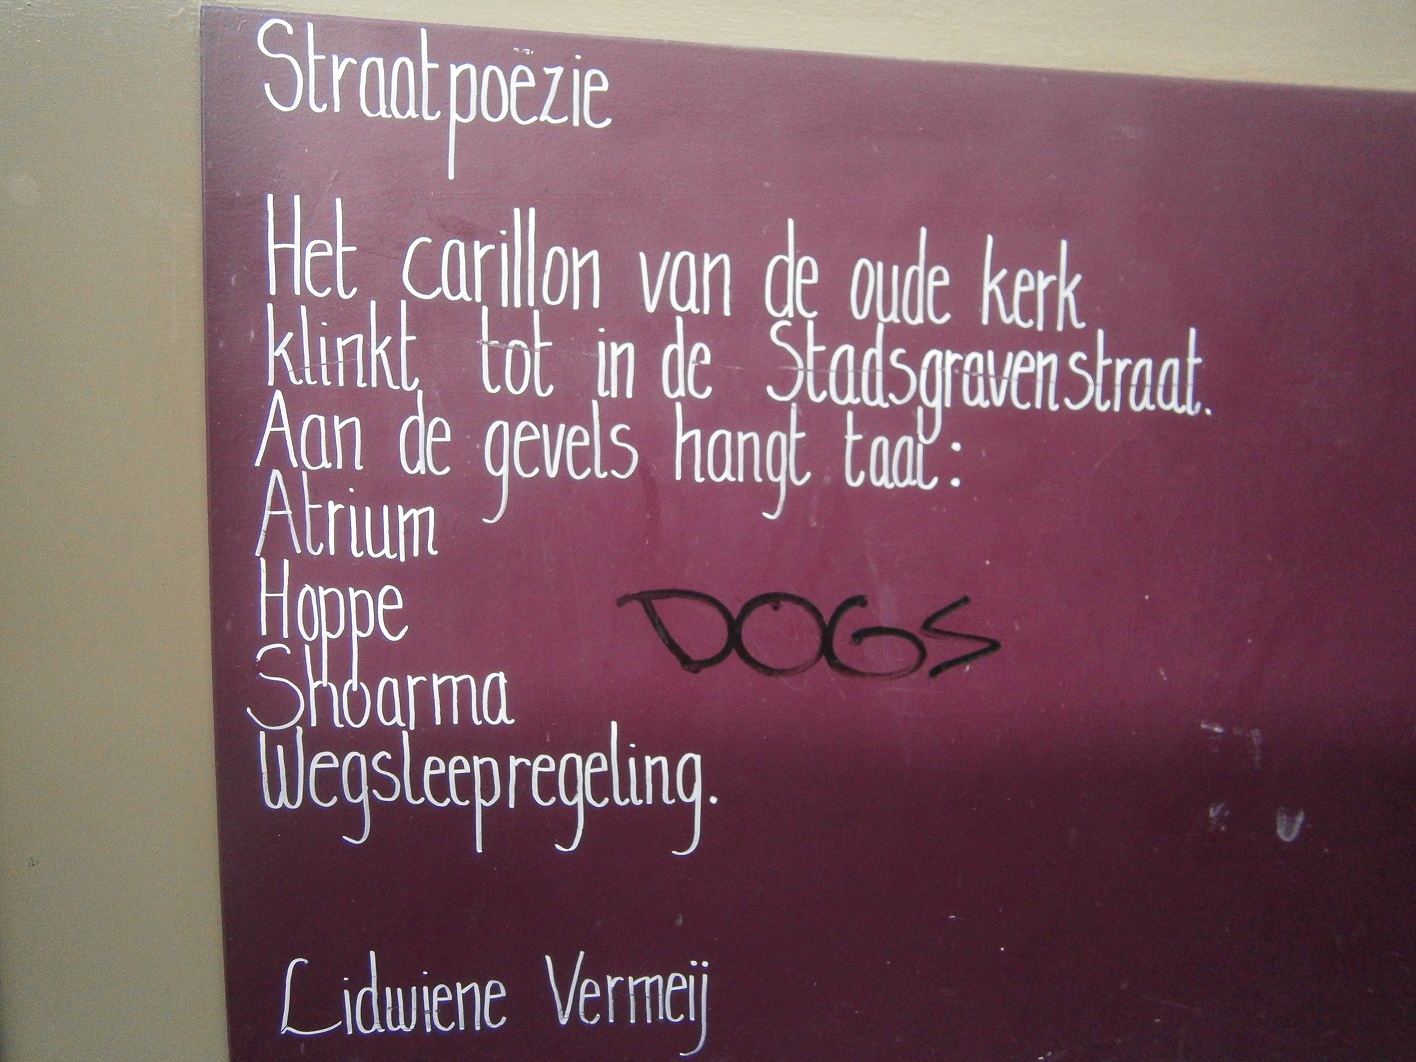 Straatpoëzie
Het carillon van de oude kerk
klinkt tot in de Stadsgravenstraat.
Aan de gevels hangt taal:
Atrium
Hoppe
DOGS
Shoarma
Wegsleepregeling.
Lidwiene Vermeij